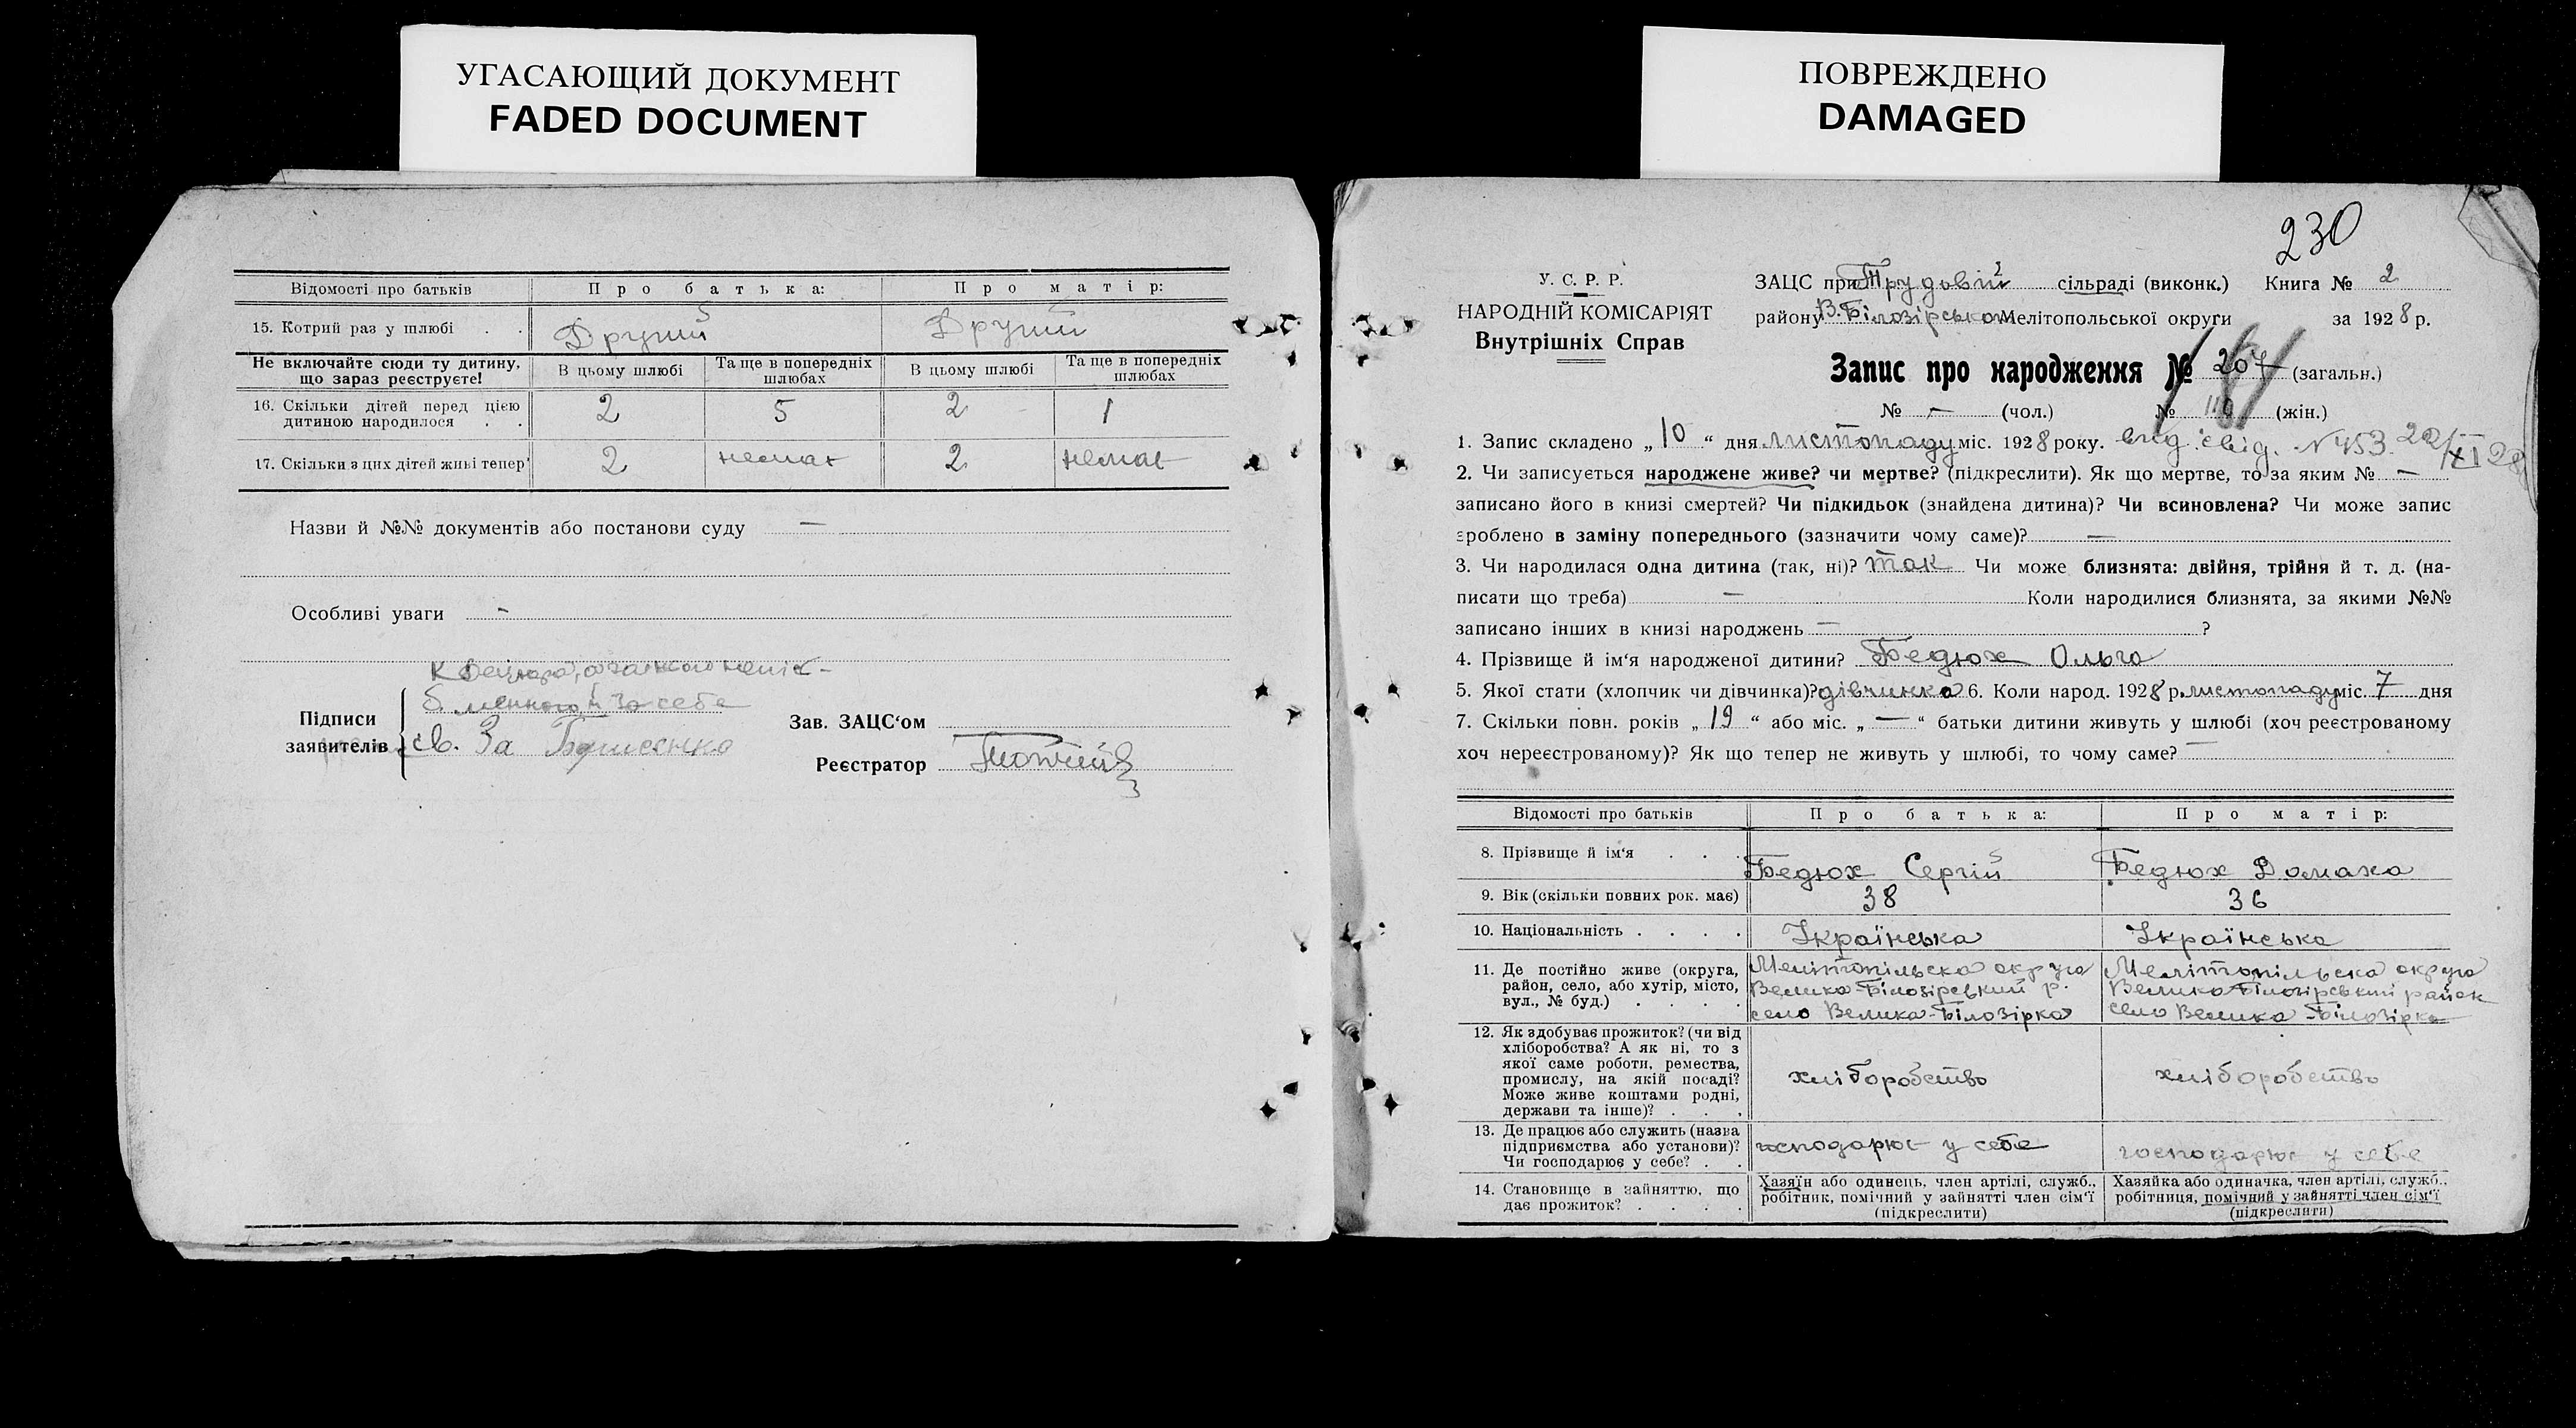 УГАСАЮЩИЙ ДОКУМЕНТ
FADED DOCUMENT
Відомості про батьків Про батька: Про матір:
15. Котрий раз у шлюбі . . Другий Другий
Не включайте сюди ту дитину, що зараз реєструєте! В цьому шлюбі Та ще в попередніх шлюбах В цьому шлюбі Та ще в попередніх шлюбах
16. Скільки дітей перед цією дитиною народилося . . 2 5 2 1
17. Скільки з цих дітей живі тепер 2 немає 2 немає
Назви й №№ документів або постанови суду —
Особливі уваги -
за себе
Підписи заявителів
св. За
Зав. ЗАЦС‘ом
Реєстратор
ПОВРЕЖДЕНО
DAMAGED
230
У. С. Р. Р.
НАРОДНІЙ КОМІСАРІЯТ
Внутрішніх Справ
ЗАЦС при Трудовій 2 сільраді (виконк.) Книга № 2
району В. Білозірськом Мелітопольської округи за 1928 р.
Запис про народження № 207 (загальн.)
№ — (чол.) № 110 (жін.)
1. Запис складено „10“ дня листопаду міс. 1928 року. вид. свід. N 453 22/XI 28
2. Чи записується народжене живе? чи мертве? (підкреслити). Як що мертве, то за яким № —
записано його в книзі смертей? Чи підкидьок (знайдена дитина)? Чи всиновлена? Чи може запис
зроблено в заміну попереднього (зазначити чому саме)? —
3. Чи народилася одна дитина (так, ні)? так Чи може близнята: двійня, трійня й т. д. (на-
писати що треба) — Коли народилися близнята, за якими №№
записано інших в книзі народжень — ?
4. Прізвище й ім‘я народженої дитини? Бедюх Ольга
5. Якої стати (хлопчик чи дівчинка)? дівчинка 6. Коли народ. 1928 р. листопаду міс. 7 дня
7. Скільки повн. років „19“ або міс. „—“ батьки дитини живуть у шлюбі (хоч реєстрованому
хоч нереєстрованому)? Як що тепер не живуть у шлюбі, то чому саме? —
Відомості про батьків Про батька: Про матір:
8. Прізвище й ім‘я . . . Бедюх Сергій Бедюх Домаха
9. Вік (скільки повних рок. має) 38 36
10. Національність . . . . Українська Українська
11. Де постійно живе (округа, район, село, або хутір, місто, вул., № буд.) . . . .
Мелітопільска округа
Велика-Білозірський р.
село Велика-Білозірка
Мелітопільска округа
Велико Білозірський район
село Велика-Білозірка
12. Як здобуває прожиток? (чи від
хліборобства? А як ні, то з
якої саме роботи, ремества,
промислу, на якій посаді?
Може живе коштами родні,
держави та інше)? . . .
хліборобство хліборобство
13. Де працює або служить (назва
підприємства або установи)?
Чи господарює у себе? . .
господарює у себе господарює у себе
14. Становище в зайняттю, що
дає прожиток? . . . .
Хазяїн або одинець, член артілі, служб.,
робітник, помічний у зайнятті член сім‘ї
(підкреслити)
Хазяйка або одиначка, член артілі, служб.,
робітниця, помічний у зайнятті член сім‘ї
(підкреслити)